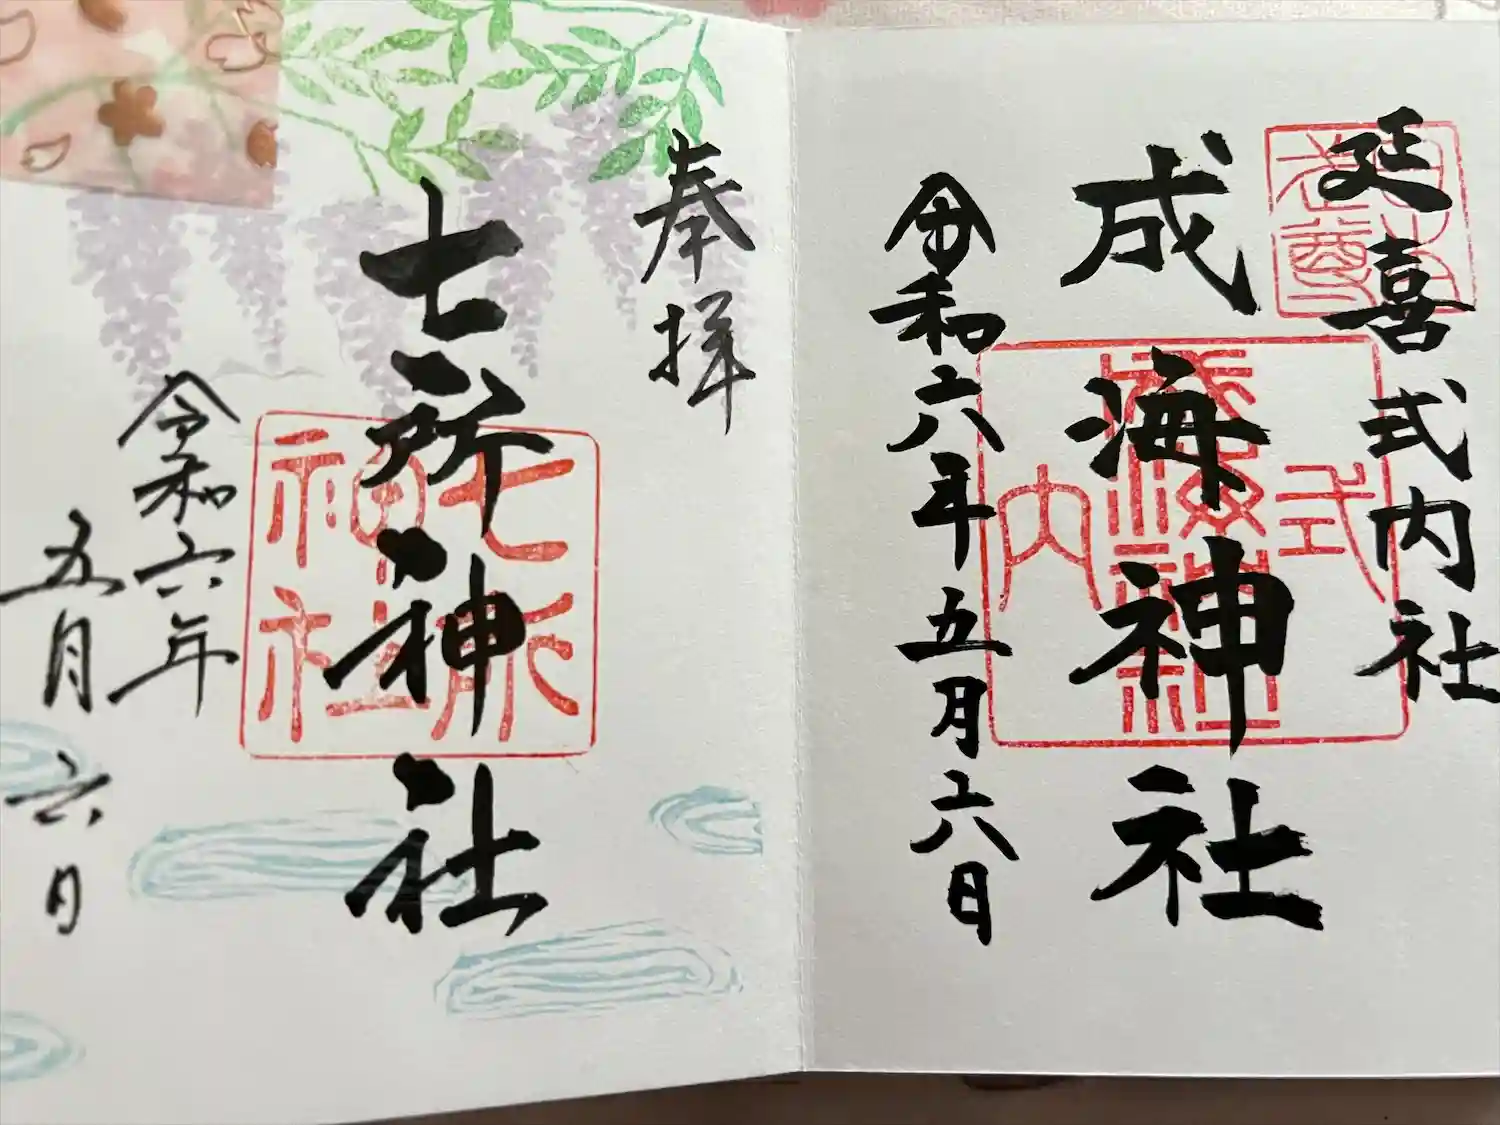 延喜式内社
成海神社
令和六年五月六日
式
成海神社
内
奉拝
七所神社
七所
神社
令和六年
五月六日